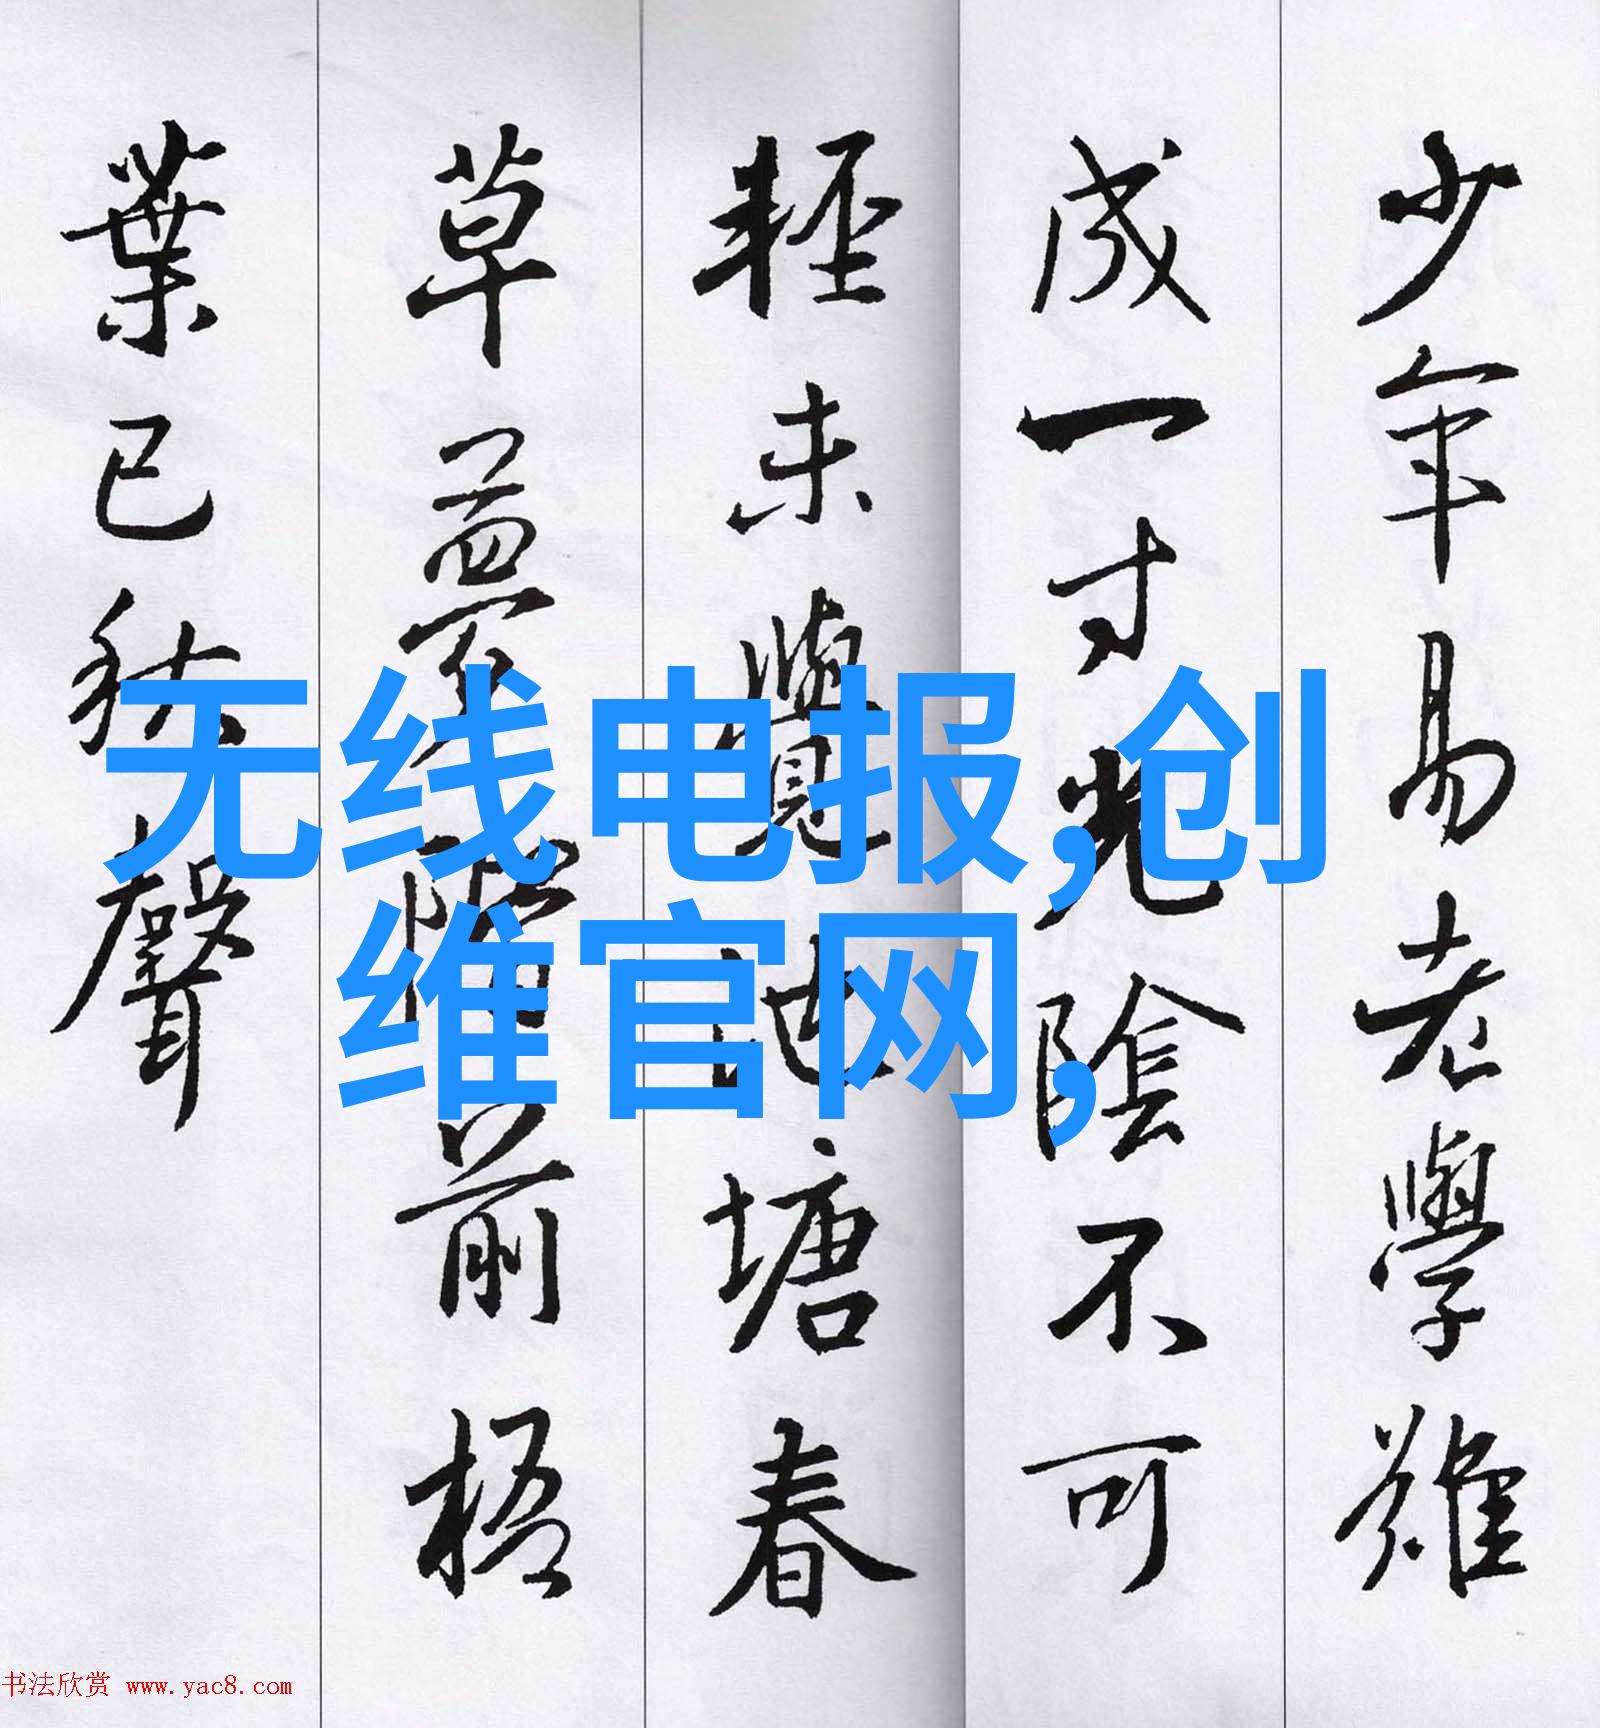 少年易老學難
成一寸光陰不可
輕未覺池塘春
草夢階前梧
葉已秋聲
无线电报,创
维官网,
书法欣赏 www.yac8.com